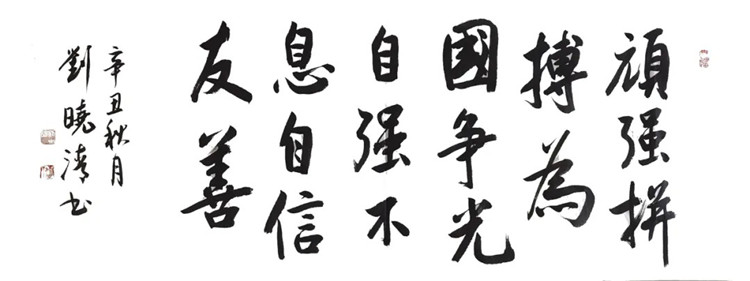 頑强拼
搏為
國争光
自强不
息自信
友善
辛丑秋月
劉曉清书